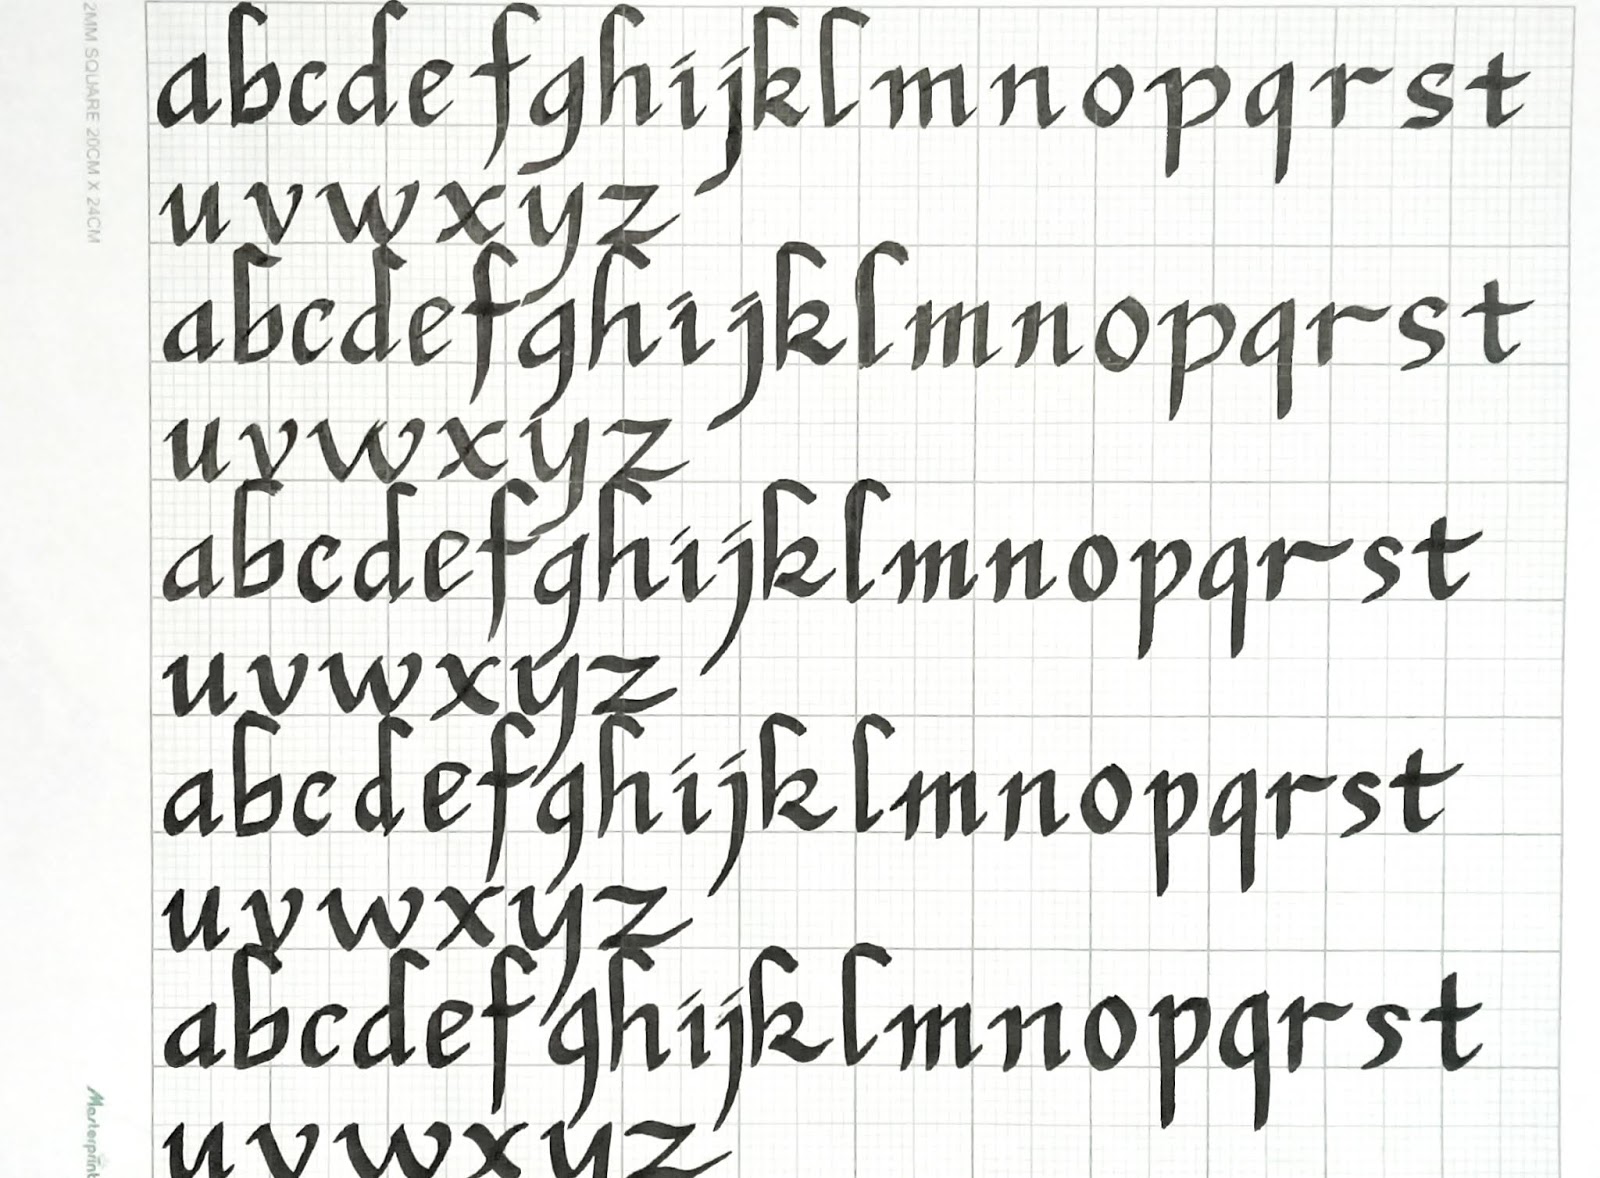 2MM SQUARE 20CM X 24CM
abcdefghijklmnopqrst
uvwxyz
abcdefghijklmnopqrst
uvwxyz
abcdefghijklmnopqrst
uvwxyz
abcdefghijklmnopqrst
uvwxyz
abcdefghijklmnopqrst
uvwxyz
Masterprint